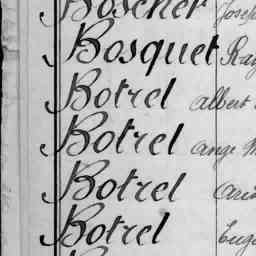 Boscher Josep
Bosquet Ray
Botrel Albert
Botrel Ange M
Botrel
Botrel Euge